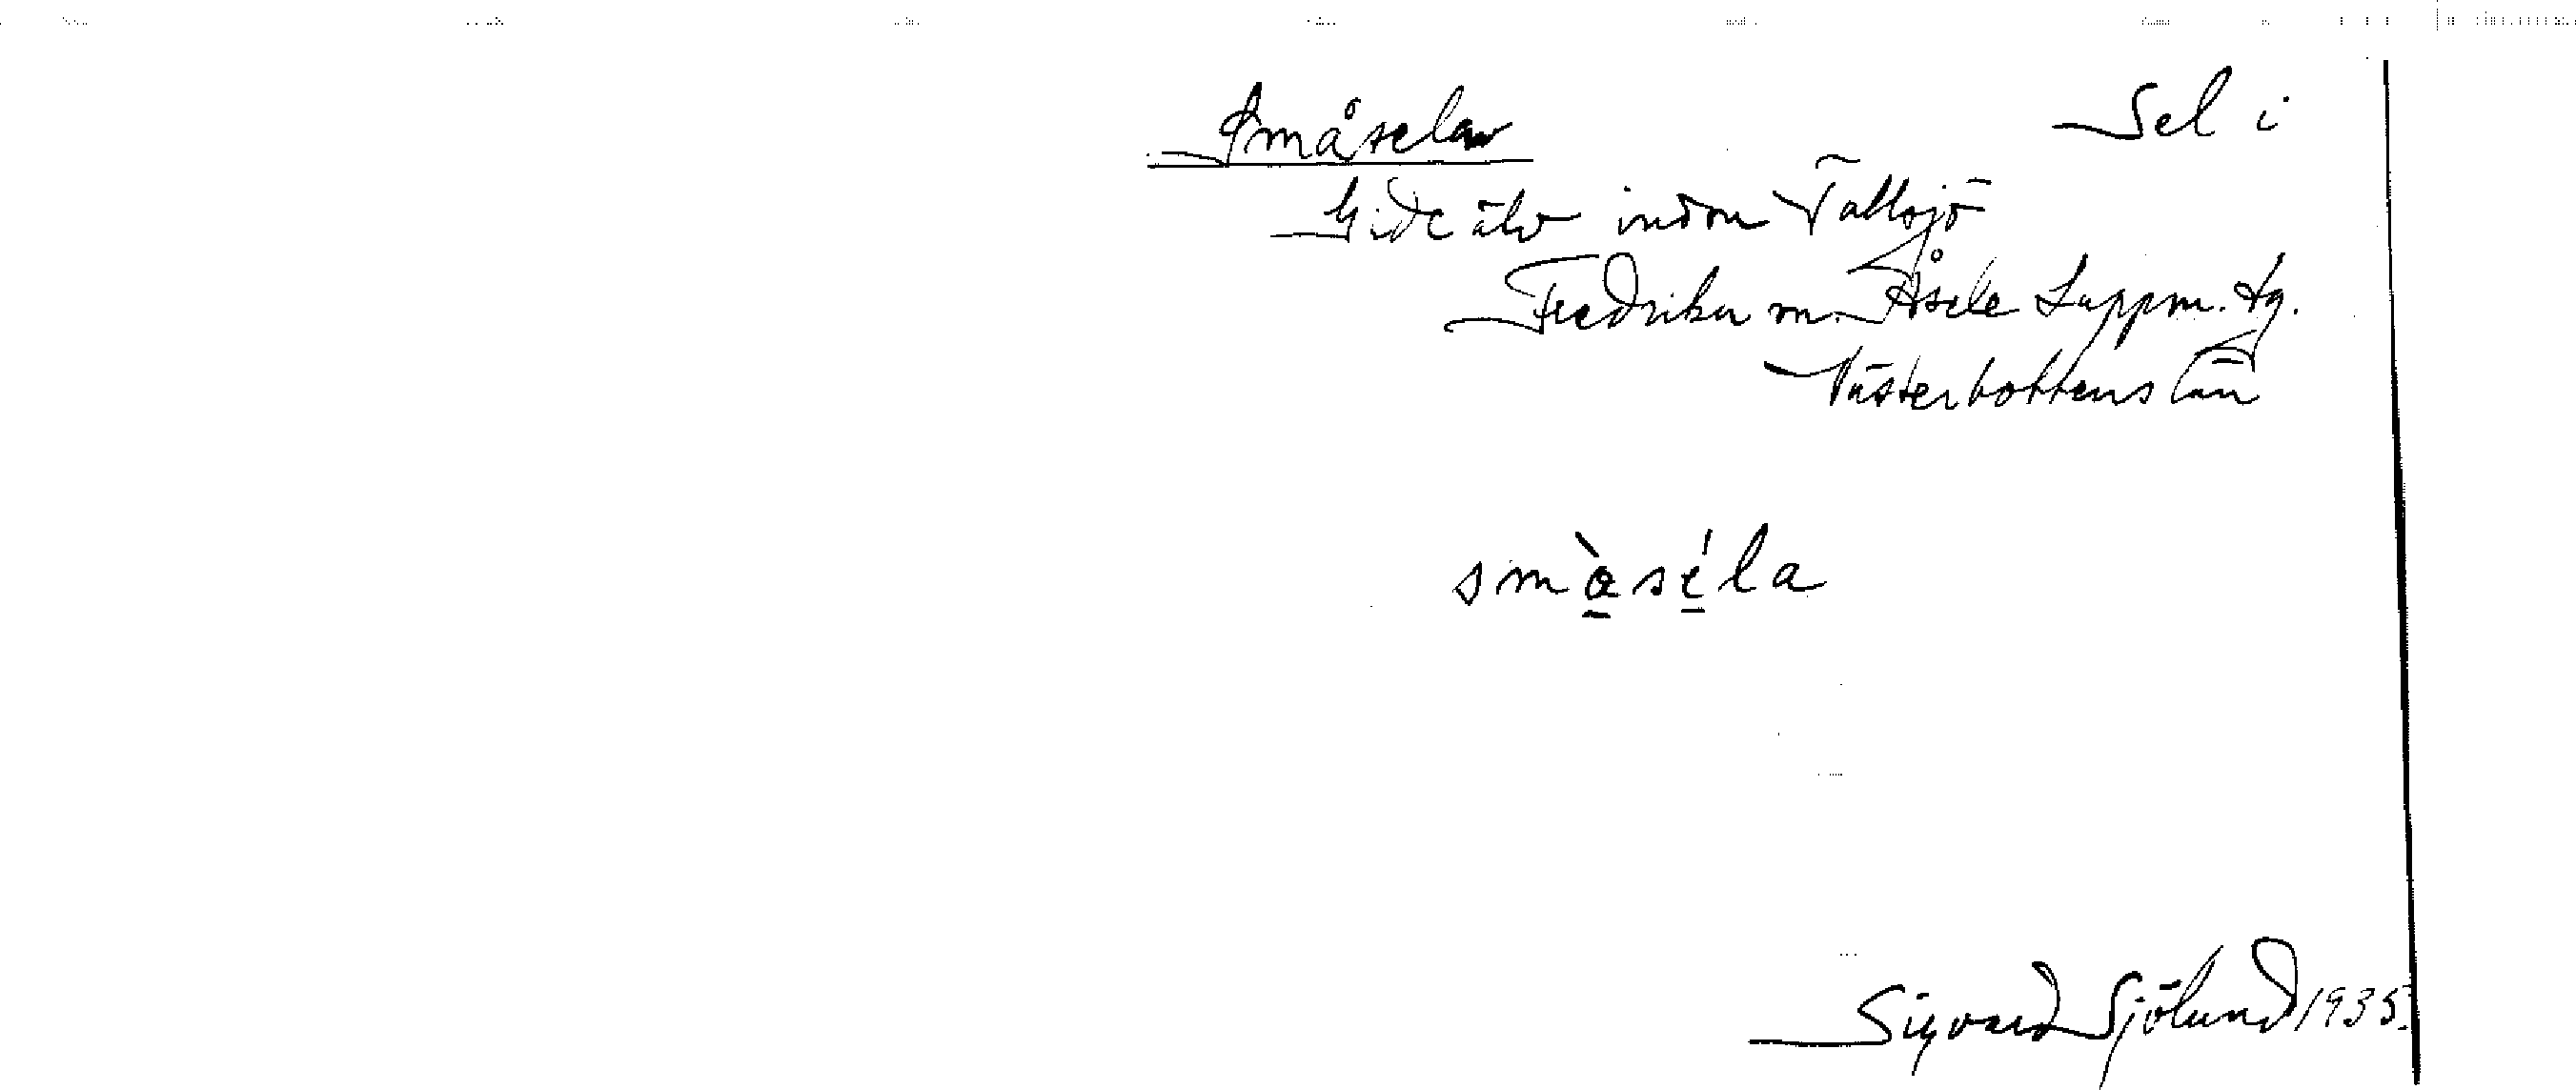 Småselen Sel i
Gideälv inom Tallsjö
Fredrika sn. Åsele Lappm. tg.
Västerbottens län
smàséla
Sigvard Sjölund 1935.